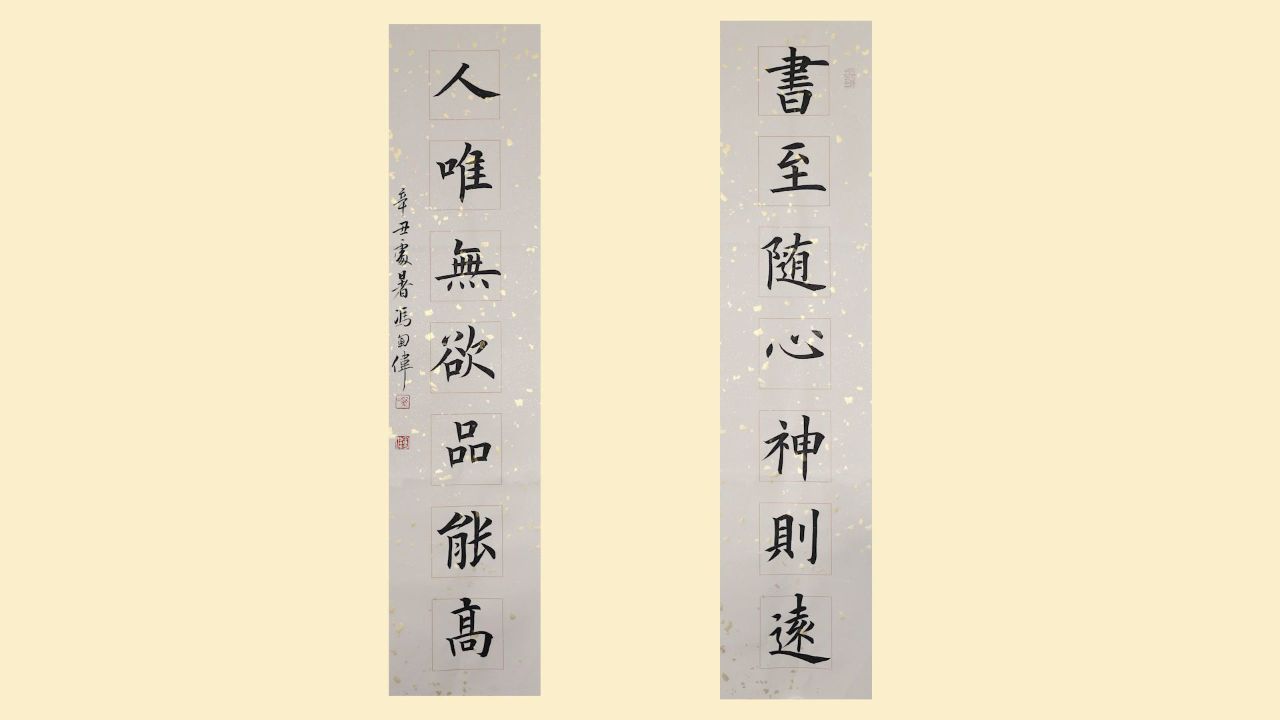 書至随心神則遠
人唯無欲品能高
辛丑處暑馮甸偉